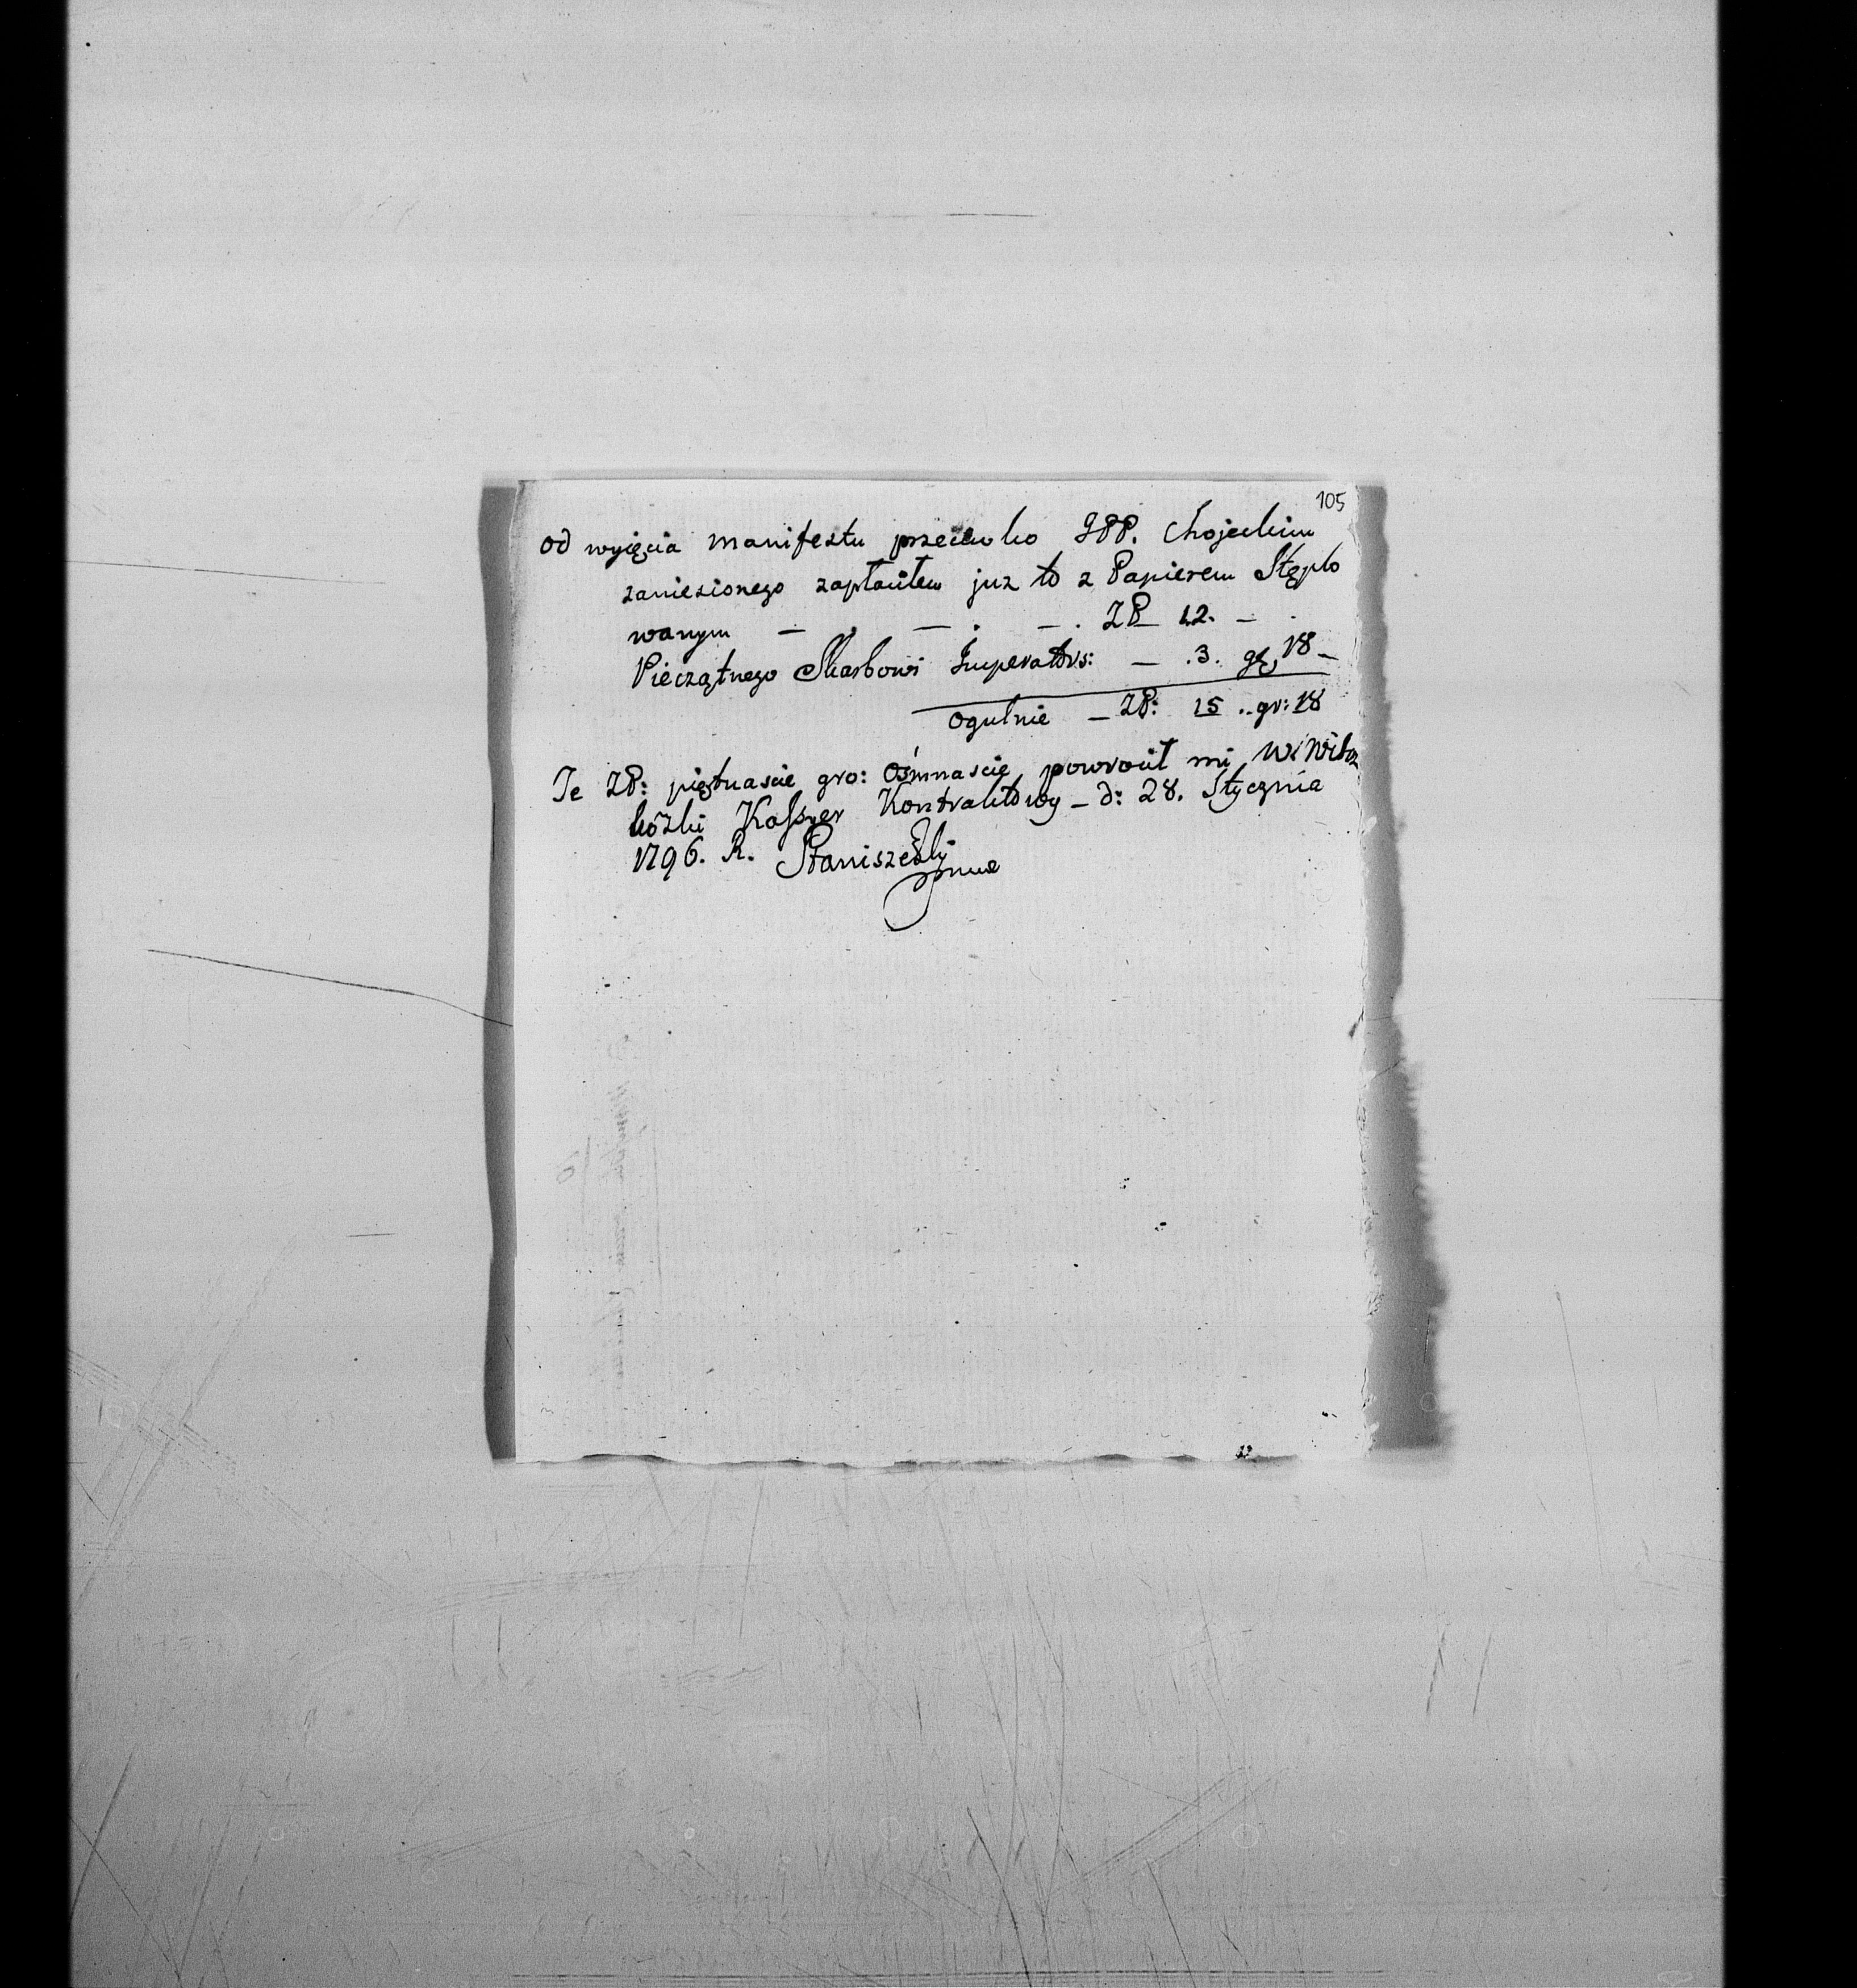 105
od wyięcia manifestu przeciwko JPP. Chojeckim
zaniesionego zapłaciłem juz to z Papierem Stęplo
wanym — . — . — . ZP 12. —
Pieczętnego Skarbowi Imperators: — .3. gr, 18 —
ogulnie — ZP: 15 .. gr: 18
Te ZP: piętnaście gro: ośmnaście powrocił mi
Kassyer Kontraktowy — d: 28. Stycznia
1796. R. Staniszewski